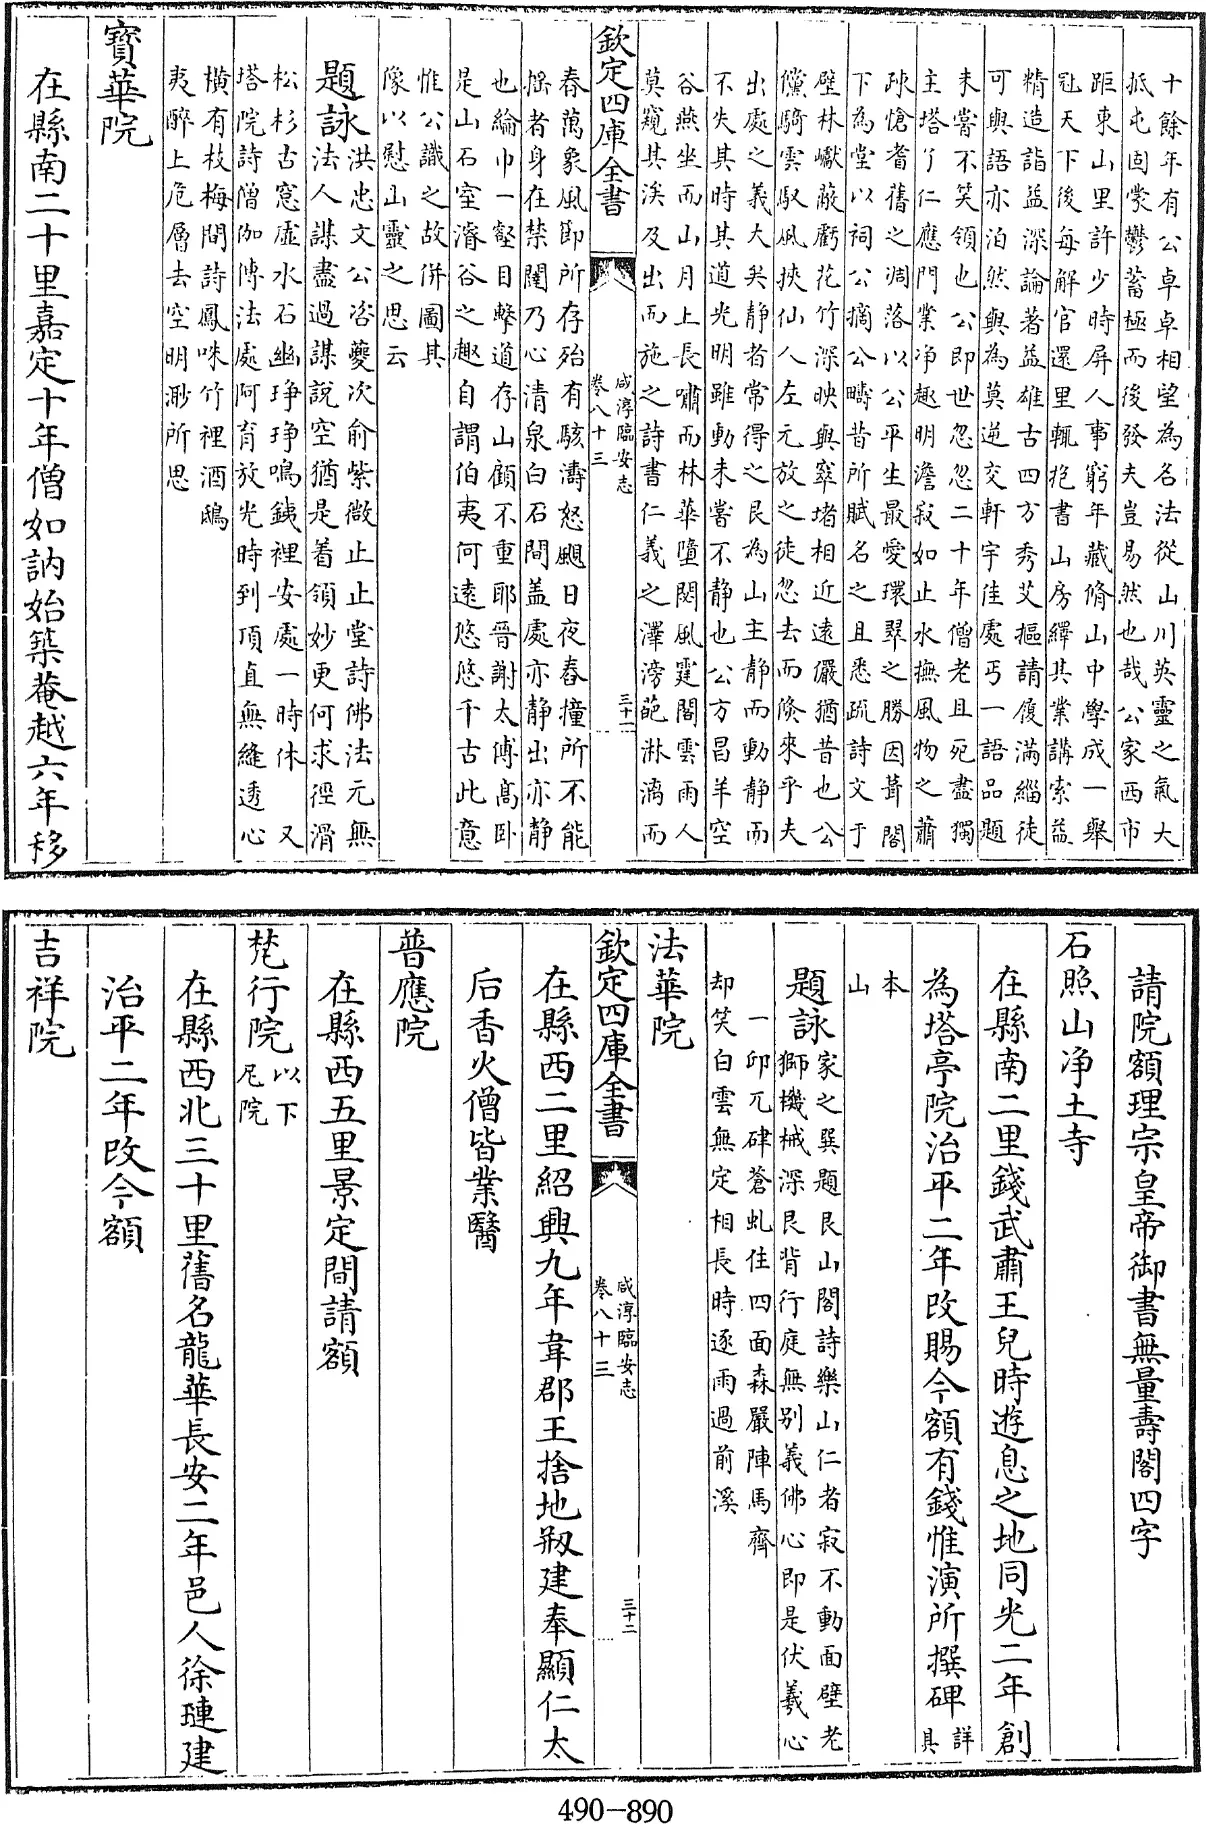 十餘年有公卓卓相望為名法從山川英靈之氣大
抵屯固蒙鬱蓄極而後發夫豈易然也哉公家西市
距東山里許少時屏人事窮年藏脩山中學成一舉
冠天下後每解官還里輒抱書山房繹其業講索益
精造詣益深論著益雄古四方秀艾摳請履滿緇徒
可與語亦泊然與為莫逆交軒宇佳處丐一語品題
未嘗不笑領也公即世忽忽二十年僧老且死盡獨
主塔了仁應門業净趣明澹寂如止水撫風物之蕭
疎愴耆舊之凋落以公平生最愛環翠之勝因葺閣
下為堂以祠公摘公疇昔所賦名之且悉疏詩文于
壁林巘蔽虧花竹深映與窣堵相近遠儼猶昔也公
儻騎雲馭風挾仙人左元放之徒忽去而倏來乎夫
出處之義大矣静者常得之艮為山主静而動静而
不失其時其道光明雖動未嘗不静也公方昌羊空
谷燕坐而山月上長嘯而林華墮閟風霆閣雲雨人
莫窺其渓及出而施之詩書仁義之澤滂葩淋漓而
欽定四庫全書
咸淳臨安志
卷八十三
三十一
春萬象風即所存殆有駭濤怒颶日夜舂撞所不能
揺者身在禁闥乃心清泉白石間盖處亦静出亦静
也綸巾一壑目擊道存山顧不重耶晉謝太傅髙卧
是山石室濬谷之趣自謂伯夷何逺悠悠千古此意
惟公識之故併圖其
像以慰山靈之思云
題詠洪忠文公咨夔次俞紫微止止堂詩佛法元無
法人謀盡過謀說空猶是着領妙更何求徑滑
松杉古窓虚水石幽琤琤鳴銕裡安處一時休 又
塔院詩僧伽傅法處阿育放光時到頂直無縫透心
横有枝梅間詩鳳咮竹裡酒鴟
夷醉上危層去空明渺所思
寶華院
在縣南二十里嘉定十年僧如訥始築菴越六年移
請院額理宗皇帝御書無量壽閣四字
石照山净土寺
在縣南二里錢武肅王兒時遊息之地同光二年創
為塔亭院治平二年改賜今額有錢惟演所撰碑詳具
本
山
題詠家之巽題艮山閣詩樂山仁者寂不動面壁老
獅機械深艮背行庭無别義佛心即是伏羲心
一卭兀硉蒼虬住四面森嚴陣馬齊
却笑白雲無定相長時逐雨過前溪
法華院
欽定四庫全書
咸淳臨安志
卷八十三
三十二
在縣西二里紹興九年韋郡王捨地剏建奉顯仁太
后香火僧皆業醫
普應院
在縣西五里景定間請額
梵行院以下尼院
在縣西北三十里舊名龍華長安二年邑人徐璉建
治平二年改今額
吉祥院
490-890